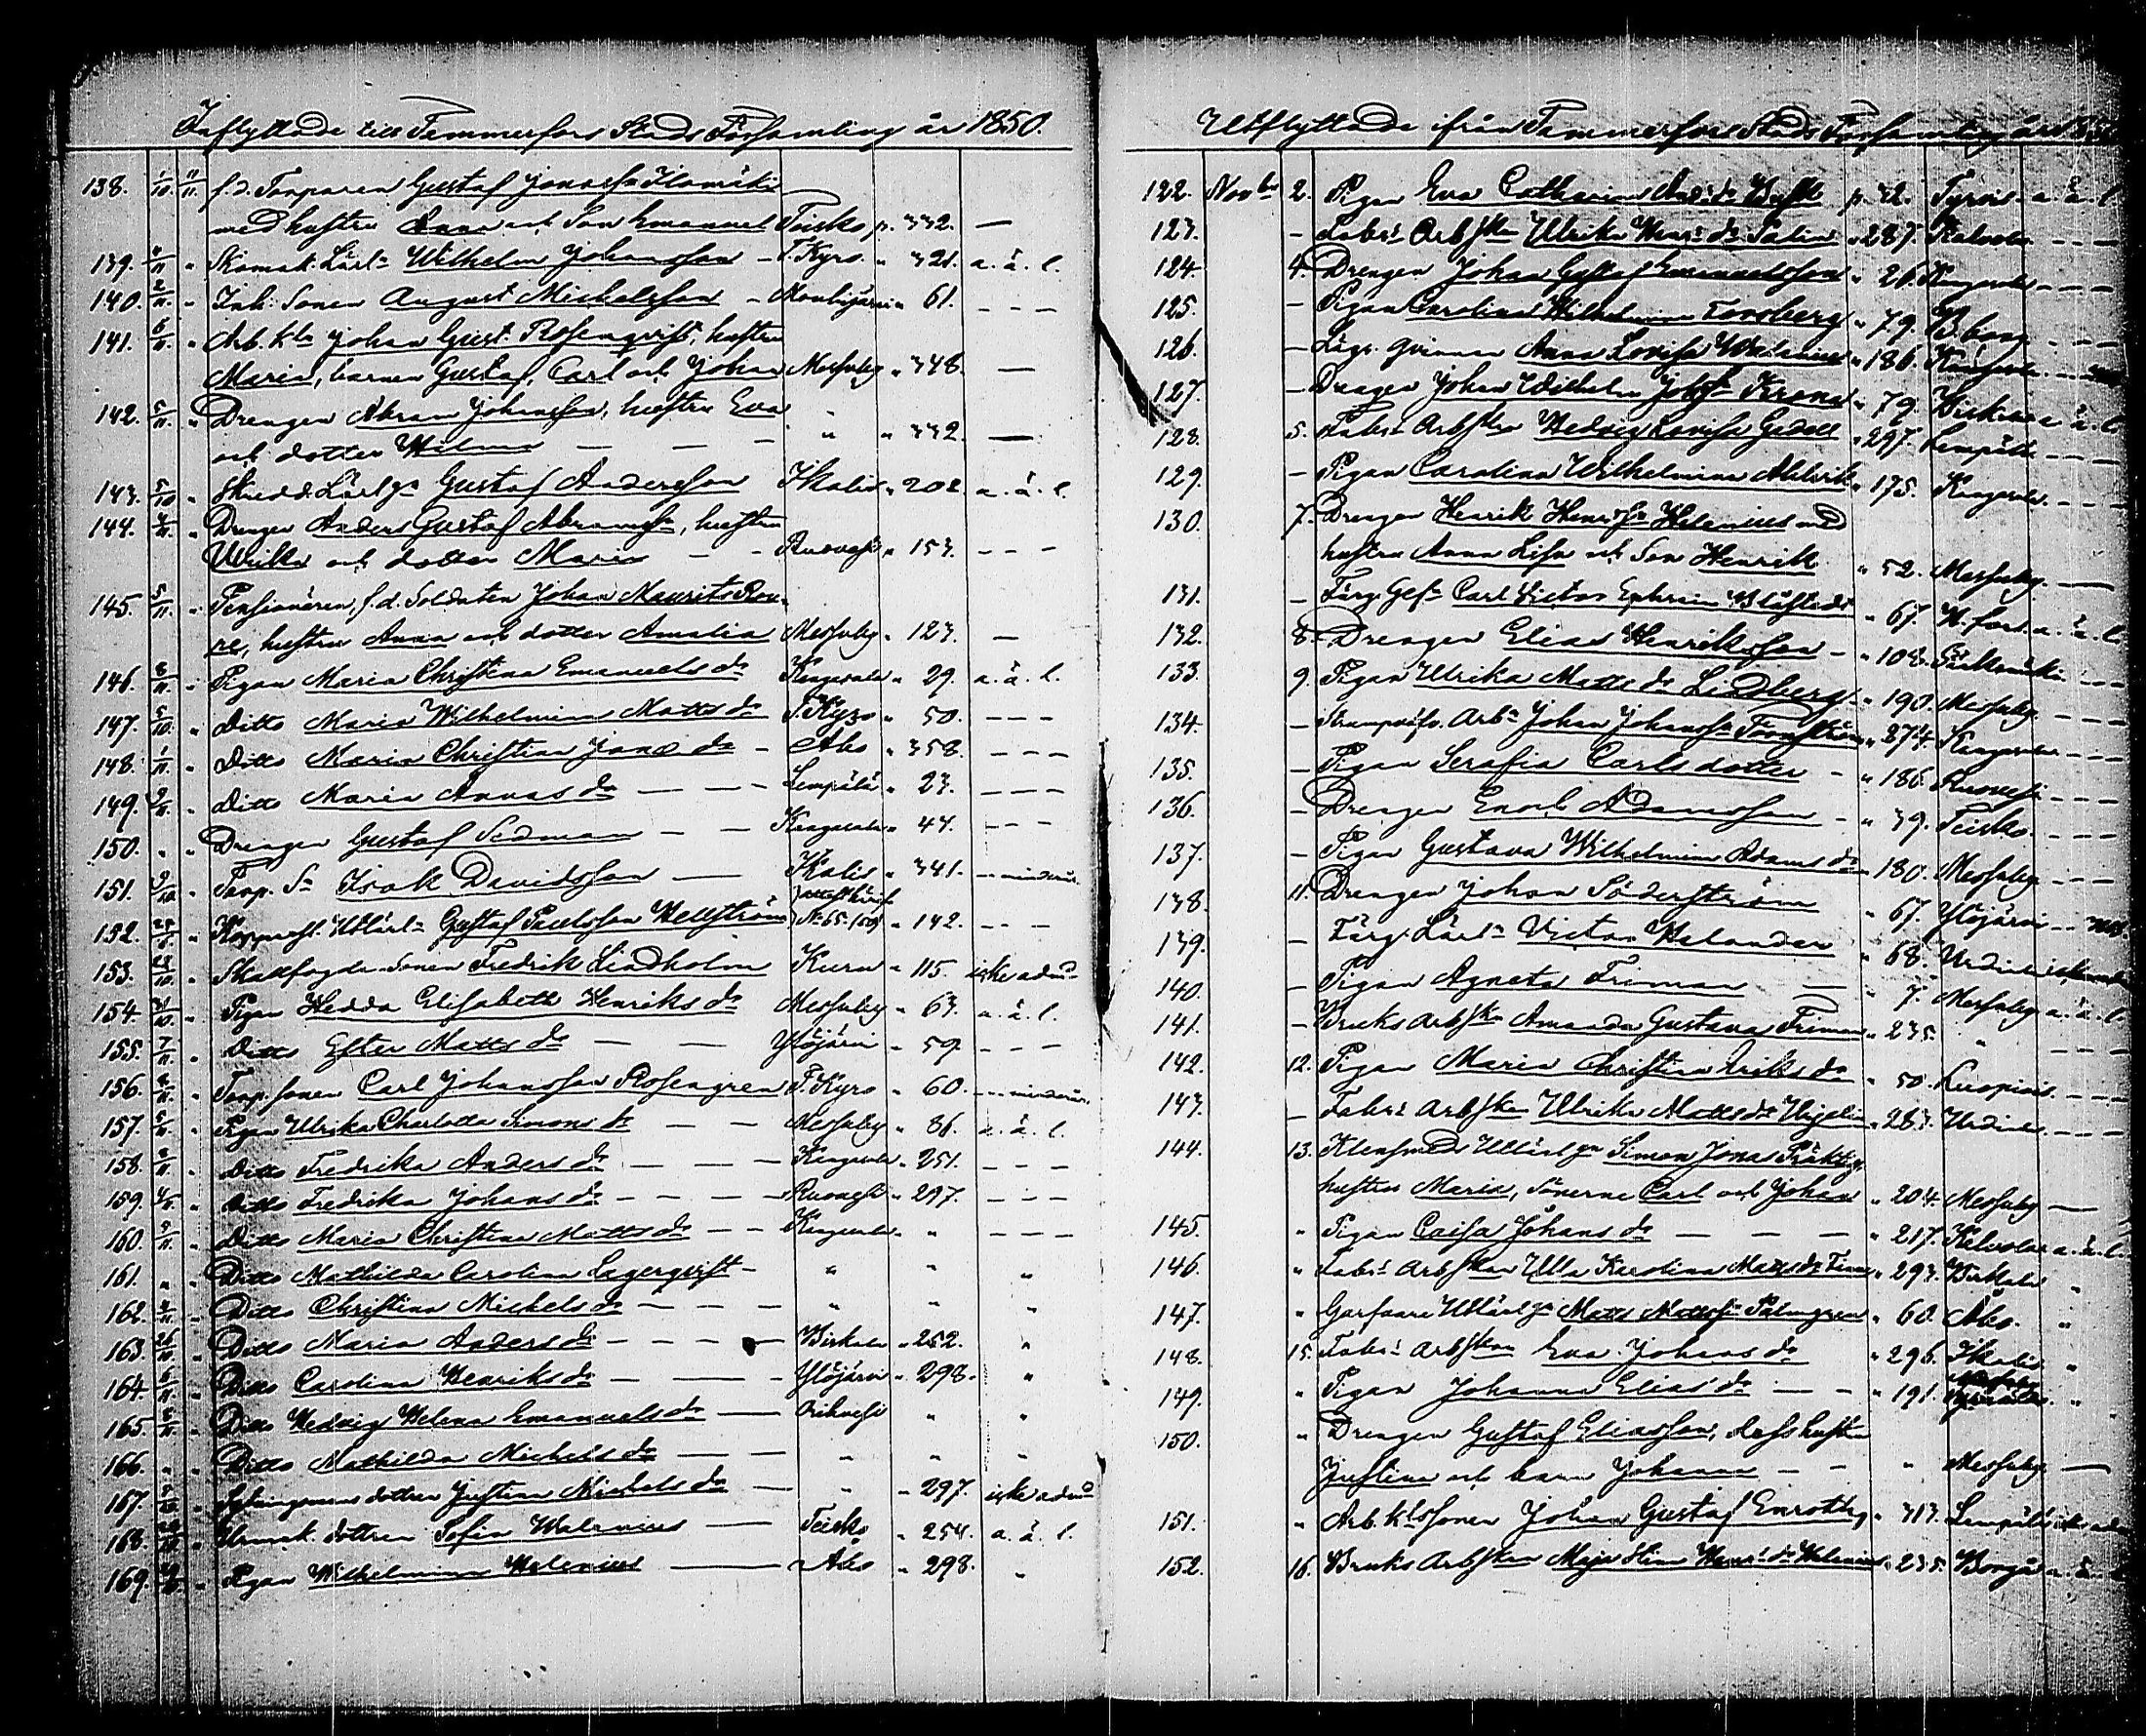 Inflyttade till Tammerfors Stads Församling år 1850.
138. 1/10 11/11. f.d. Torparen Gustaf Jonass. Ilomäki
med hustru Anna och Son Emanuel Teisko p. 332. —
139. 4/11 " Skomak. Lärl. Wilhelm Johansson - T. Kyro " 321. a. ä. l.
140. 2/11 " Inh. Sonen August Michelsson - Mouhijärvi " 61. - - -
141. 6/11 " Arb. kln Johan Gust. Rosenqvist, hustru
Maria, barnen Gustaf, Carl och Johan Messuby " 348. —
142. 5/11 " Drengen Abram Johansson, hustru Eva
och dotter Wilma — — - " " 332. —
143. 5/10 " Skredd. Lärlgn Gustaf Andersson Ikalis " 202. a. ä. l.
144. 4/11 " Drengen Anders Gustaf Abramss., hustru
Ulrika och dotter Maria — - Ruovesi " 153. - - -
145. 5/11 " Pensionären, f.d. Soldaten Johan Maurits Rou-
re, hustru Anna och dotter Amalia Messuby " 123. —
146. 8/11 " Pigan Maria Christina Emanuels dr Kangasala " 29. a. ä. l.
147. 5/10 " Ditto Maria Wilhelmina Matts dr T. Kyro " 50. - - -
148. 1/11 " Ditto Maria Christina Jons dr - Åbo " 358. - - -
149. 9/11 " Ditto Maria Annas dr — - - Lempälä " 23. - - -
150. " " Drengen Gustaf Sedman — — Kangasala " 44. - - -
151. 9/10 " Torp. Sn Isak Davidsson — Ikalis " 341. - - minderår.
152. " Kopparsl. Utlärl. Gustaf Paulsson Hellström No 65. 1850 " 142. - - -
153. 28/10 " Skallfogde Sonen Fredrik Lindholm Kuru " 115. icke adm.
154. 31/10 " Pigan Hedda Elisabeth Henriks dr Messuby " 63. a. ä. l.
155. 7/11 " Ditto Ester Matts dr — — Ylöjärvi " 59. - - -
156. 2/11 " Torp. sonen Carl Johansson Rosengren T. Kyro " 60. - - minderår.
157. 5/11 " Pigan Ulrika Charlotta Simons dr — — Messuby " 86. a. ä. l.
158. 2/11 " Ditto Fredrika Anders dr — — — Kangasala " 251. - - -
159. 4/11 " Ditto Fredrika Johans dr — - - - Ruovesi " 297. - - -
160. 9/11 " Ditto Maria Christina Matts dr - - Kangasala " " - - -
161. " " Ditto Mathilda Carolina Lagerqvist - " " "
162. 2/11 " Ditto Christina Michels dr - - - " " "
163. 26/10 " Ditto Maria Anders dr - - - — Birkala " 252. "
164. 6/11 " Ditto Carolina Henriks dr — — Ylöjärvi " 298. "
165. 8/11 " Ditto Hedvig Helena Emanuels dr — Orihvesi " "
166. " " Ditto Mathilda Michels dr — — " " "
167. " dottren Justina Michels dr — " " 297. icke adm
168. " dottren Sofia Walenius — Teisko " 254. a. ä. l.
169. " Pigan Wilhelmina Walenius — Åbo " 298. "
Utflyttade ifrån Tammerfors Stads Församling år 1850
122. Novbr 2. Pigan Eva Catharina p. 42. Tyrvis a. ä. l
123. - Fabrs Arbskan Ulrika Henrs dr Salin " 287. Kalvola - - -
124. 4. Drengen Johan Gustaf Emanuelsson " 26. Kangasala - - -
125. - Pigan Carolina Wilhelmina Forsberg " 79. B.borg - - -
126. - Lägr. qvinnan Anna Lovisa Walenius " 186. Kangasala - -
127. - Drengen Johan Wilhelm " 79. Birkala a. ä. l
128. 5. Fabrs Arbskan Hedvig Lovisa Gadell " 297. Lempälä - - -
129. - Pigan Carolina Wilhelmina " 175. Kangasala - - -
130. 7. Drengen Henrik Henrss. Helenius med
hustru Anna Lisa och Son Henrik " 52. Messuby —
131. - Färg. Gesn Carl Victor Ephraim " 67. H.fors. a. ä. l.
132. 8. Drengen Elias Henriksson - " 108. Sääksmäki - - -
133. 9. Pigan Ulrika Matts dr Lindberg " 190. Messuby - - -
134. - Strumpväfv. Arb. Johan Johanss. Törnström " 274. Kangasala - - -
135. - Pigan Serafia Carlsdotter - " 186. Ruovesi - - -
136. - Drengen Enok Adamsson - " 39. Teisko. - - -
137. - Pigan Gustava Wilhelmina Adams dr " 180. Messuby - - -
138. 11. Drengen Johan Söderström " 67. Ylöjärvi - -
139. - Färg. Lärl. Victor Walander " 68. Urdiala
140. - Pigan Agneta Friman — " 7. Messuby a. ä. l
141. - Bruks Arbskan Amanda Gustava Friman " 235. " - - -
142. 12. Pigan Maria Christina Eriks dr " 50. Kuopio. - - -
143. - Fabrs Arbskan Ulrika Matts dr " 283. Urdiala - - -
144. 13. Klensmeds Utlärlgn Simon Jonas
hustru Maria, Sönerne Carl och Johan " 204. Messuby —
145. " Pigan Caisa Johans dr — — — " 217. Kalvola a. ä. l.
146. " Fabrs Arbskan Ulla Karolina Matts dr " 293. Birkala "
147. " Garfvare Utlärlgn Matts Mattss. Palmgren " 60. Åbo. "
148. 15. Fabrs Arbskan Eva Johans dr " 296. Ikalis "
149. " Pigan Johanna Elias dr — — " 191. "
150. " Drengen Gustaf Eliasson, dess hustru
Justina och barn Johanna - - " Messuby —
151. " Arb. kls Sonen Johan Gustaf Enroth " 313. Lempälä
152. 16. Bruks Arbskan Maja Stina Henrs dr Helenius " 235. Borgå a. ä. l